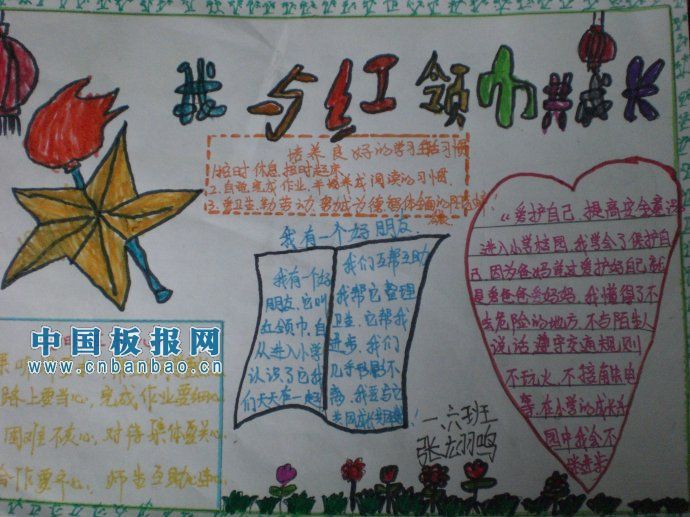 我与红领巾共成长
培养良好的学习生活习惯
1.按时休息,按时起床
2.自觉完成作业,并培养成阅读的习惯.
3.要卫生,勤劳动,
我有一个好朋友
我有一个好
朋友,它叫
红领巾,自
从进入小学
认识了它我
们天天在一起
我们互帮互助
我帮它整理
卫生,它帮我
进步,我们
几乎形影不
离,我要与它
共同成长
《爱护自己,提高安全意识》
进入小学校园,我学会了保护自
己,因为爸妈说过爱护好自己就
是爱爸爸爱妈妈,我懂得了不
去危险的地方,不与陌生人
说话,遵守交通规则
不玩火,不接触电
等,在小学的成长乐
园中我会不
断进步
中国板报网
www.cnbanbao.cn
路上要当心,完成作业要细心
困难不灰心,对待集体要关心,
合作要齐心,师生互助心连心.
一六班
张栩鸣